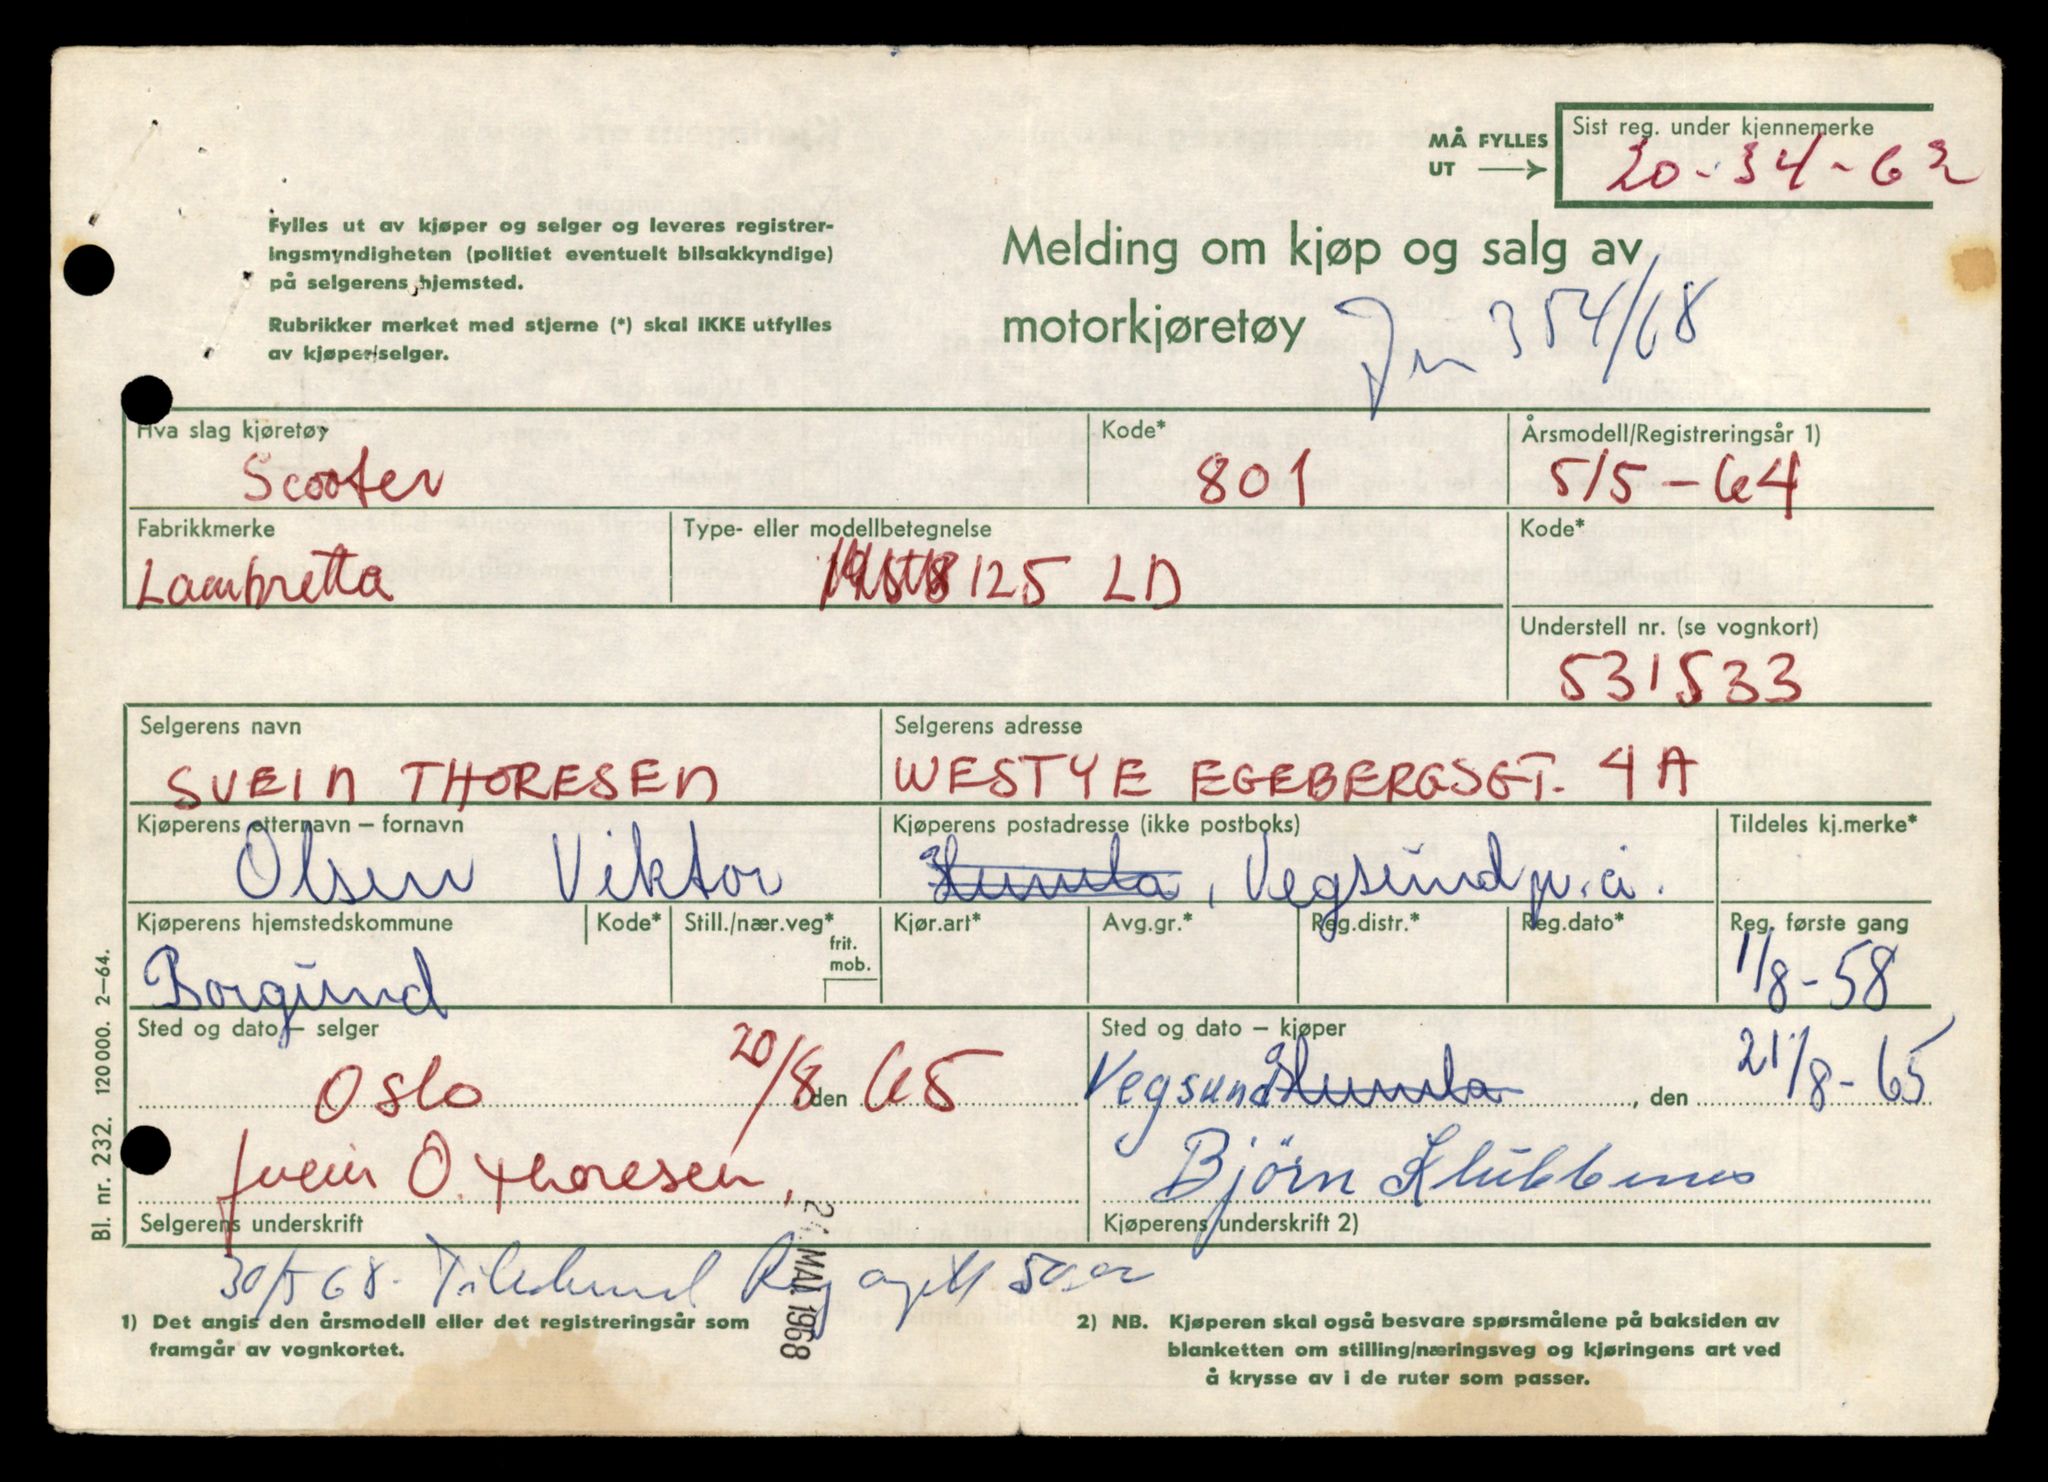 MÅ FYLLES
UT
Sist reg. under kjennemerke
20-34-62
Fylles ut av kjøper og selger og leveres registrer-
ingsmyndigheten (politiet eventuelt bilsakkyndige)
på selgerens hjemsted.
Rubrikker merket med stjerne (*) skal IKKE utfylles
av kjøper/selger.
Melding om kjøp og salg av
motorkjøretøy
Jn 354/68
Hva slag kjøretøy
Scooter
Kode*
801
Årsmodell/Registreringsår 1)
5/5-64
Fabrikkmerke
Lambretta
Type- eller modellbetegnelse
125 LD
Kode*
Understell nr. (se vognkort)
531533
Selgerens navn
SVEIN THORESEN
Selgerens adresse
WESTYE EGEBERGSGT. 4A
Kjøperens etternavn – fornavn
Olsen Viktor
Kjøperens postadresse (ikke postboks)
Humla, Vegsund p.å.
Tildeles kj.merke*
Kjøperens hjemstedskommune
Borgund
Kode*
Still./nær.veg*
frit.
mob.
Kjør.art*
Avg.gr.*
Reg.distr.*
Reg.dato*
Reg. første gang
1/8-58
Sted og dato – selger
Oslo 20/8 den 65
Sted og dato – kjøper
Vegsund Humla, den 21/8-65
Svein O. Thoresen.
Selgerens underskrift
Bjørn Klubbenes
Kjøperens underskrift 2)
30/5 68. Reg
24. MAI. 1968
1) Det angis den årsmodell eller det registreringsår som
framgår av vognkortet.
2) NB. Kjøperen skal også besvare spørsmålene på baksiden av
blanketten om stilling/næringsveg og kjøringens art ved
å krysse av i de ruter som passer.
Bl. nr. 232. 120 000. 2–64.